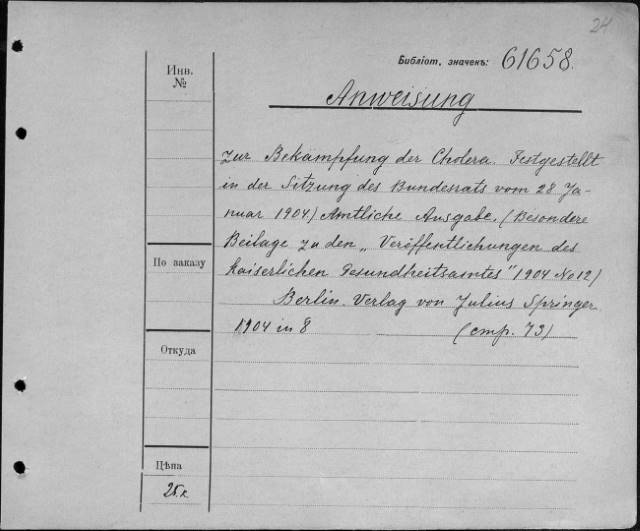 24
Библіот. значекъ: 61658.
Инв.
№
Anweisung
zur Bekämpfung der Cholera. Festgestellt
in der Sitzung des Bundesrats vom 28. Ja-
nuar 1904) Amtliche Ausgabe. (Besondere
Beilage zu den „Veröffentlichungen des
Kaiserlichen Gesundheitsamtes" 1904 No 12)
По заказу
Berlin. Verlag von Julius Springer
1904 in 8 (стр. 73)
Откуда
Цѣна
25 к.